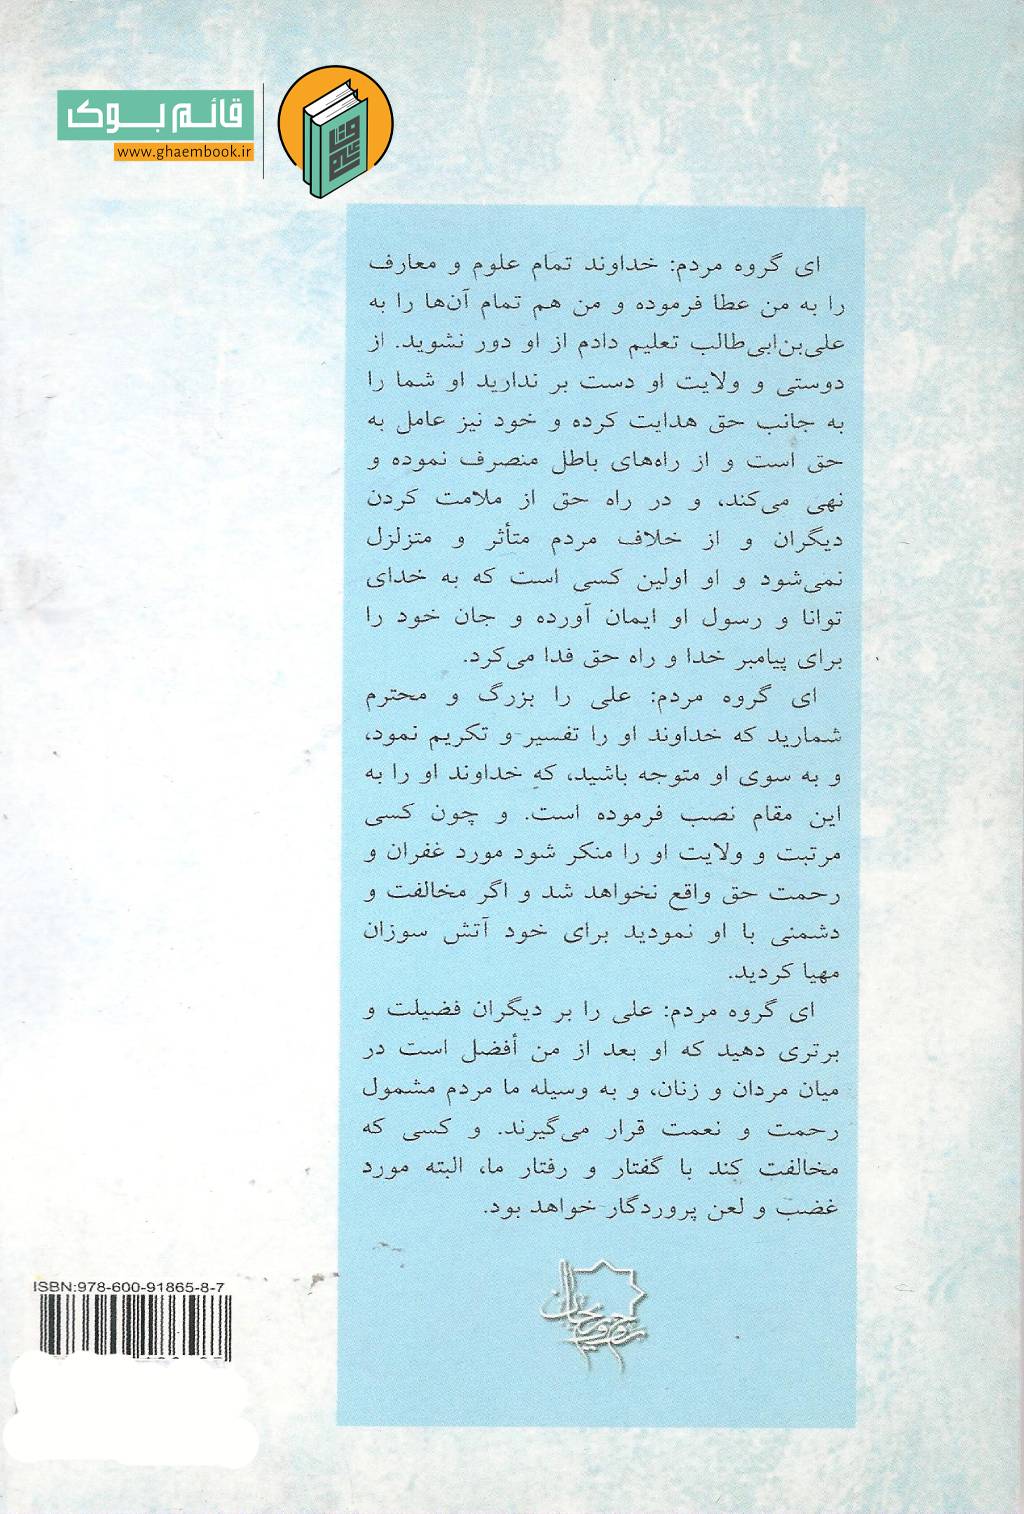 قائم بوک
www.ghaembook.ir
ای گروه مردم: خداوند تمام علوم و معارف
را به من عطا فرموده و من هم تمام آن‌ها را به
علی‌بن‌ابی‌طالب تعلیم دادم از او دور نشوید. از
دوستی و ولایت او دست بر ندارید او شما را
به جانب حق هدایت کرده و خود نیز عامل به
حق است و از راه‌های باطل منصرف نموده و
نهی می‌کند، و در راه حق از ملامت کردن
دیگران و از خلاف مردم متأثر و متزلزل
نمی‌شود و او اولین کسی است که به خدای
توانا و رسول او ایمان آورده و جان خود را
برای پیامبر خدا و راه حق فدا می‌کرد.
ای گروه مردم: علی را بزرگ و محترم
شمارید که خداوند او را تفسیر و تکریم نمود،
و به سوی او متوجه باشید، که خداوند او را به
این مقام نصب فرموده است. و چون کسی
مرتبت و ولایت او را منکر شود مورد غفران و
رحمت حق واقع نخواهد شد و اگر مخالفت و
دشمنی با او نمودید برای خود آتش سوزان
مهیا کردید.
ای گروه مردم: علی را بر دیگران فضیلت و
برتری دهید که او بعد از من أفضل است در
میان مردان و زنان، و به وسیله ما مردم مشمول
رحمت و نعمت قرار می‌گیرند. و کسی که
مخالفت کند با گفتار و رفتار ما، البته مورد
غضب و لعن پروردگار خواهد بود.
ISBN:978-600-91865-8-7